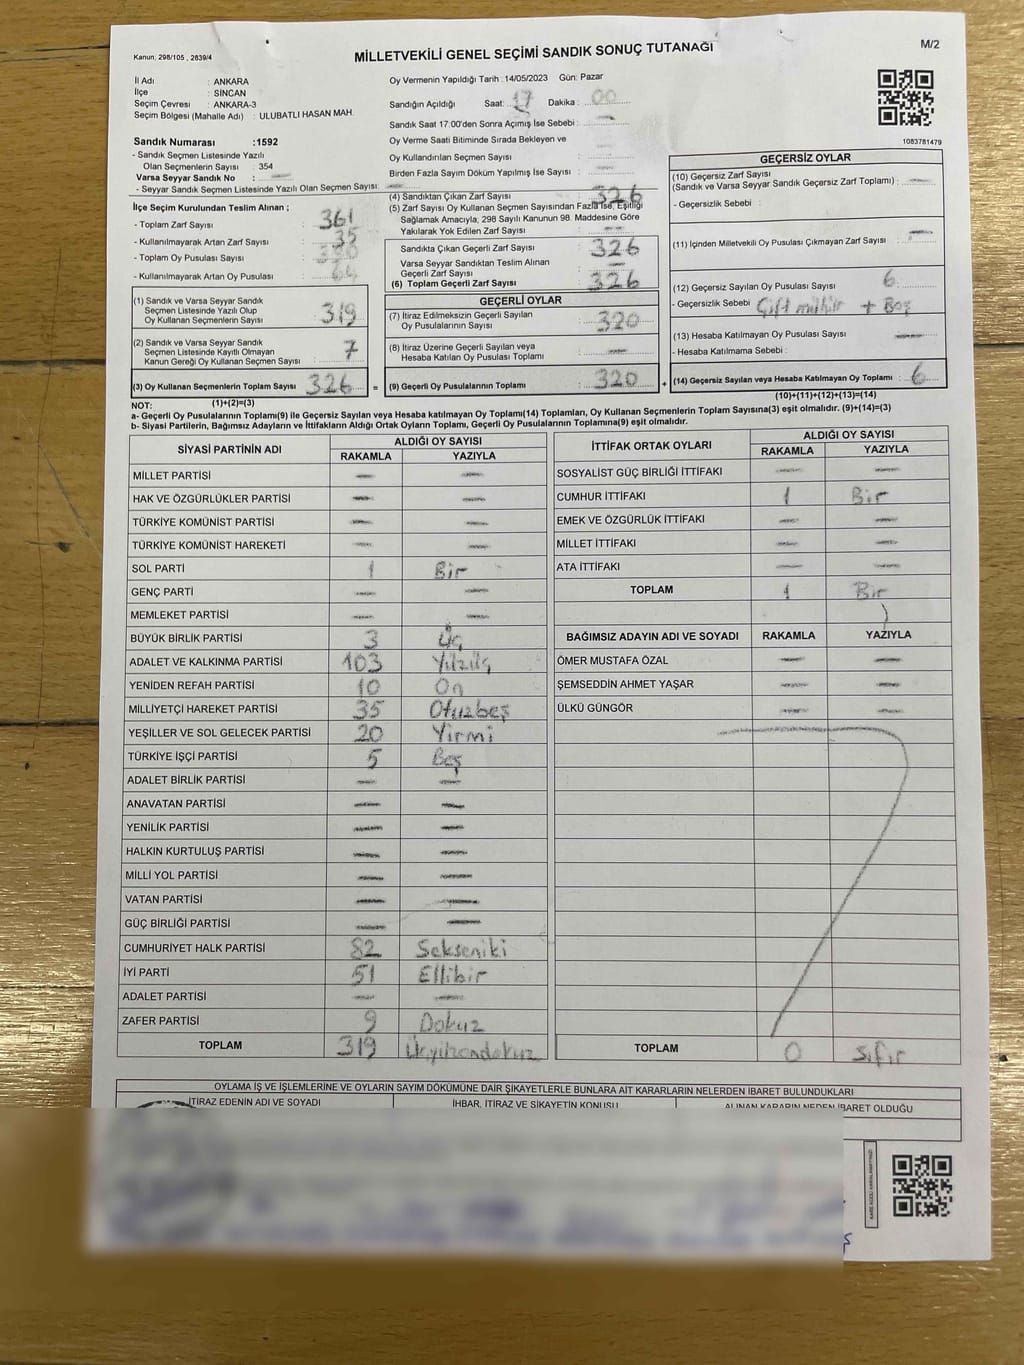 Kanun: 298/105 , 2839/4
MİLLETVEKİLİ GENEL SEÇİMİ SANDIK SONUÇ TUTANAĞI
M/2
İl Adı : ANKARA
İlçe : SİNCAN
Seçim Çevresi : ANKARA-3
Seçim Bölgesi (Mahalle Adı) : ULUBATLI HASAN MAH.
Sandık Numarası :1592
- Sandık Seçmen Listesinde Yazılı
Olan Seçmenlerin Sayısı : 354
Varsa Seyyar Sandık No :
- Seyyar Sandık Seçmen Listesinde Yazılı Olan Seçmen Sayısı:
Oy Vermenin Yapıldığı Tarih : 14/05/2023 Gün: Pazar
Sandığın Açıldığı Saat: 17 Dakika : 00
Sandık Saat 17.00'den Sonra Açımış İse Sebebi :
Oy Verme Saati Bitiminde Sırada Bekleyen ve
Oy Kullandırılan Seçmen Sayısı :
Birden Fazla Sayım Döküm Yapılmış İse Sayısı :
1083781479
İlçe Seçim Kurulundan Teslim Alınan ;
- Toplam Zarf Sayısı : 361
- Kullanılmayarak Artan Zarf Sayısı : 35
- Toplam Oy Pusulası Sayısı :
- Kullanılmayarak Artan Oy Pusulası : 64
(1) Sandık ve Varsa Seyyar Sandık
Seçmen Listesinde Yazılı Olup
Oy Kullanan Seçmenlerin Sayısı : 319
(2) Sandık ve Varsa Seyyar Sandık
Seçmen Listesinde Kayıtlı Olmayan
Kanun Gereği Oy Kullanan Seçmen Sayısı : 7
(3) Oy Kullanan Seçmenlerin Toplam Sayısı : 326 =
(1)+(2)=(3)
(4) Sandıktan Çıkan Zarf Sayısı : 326
(5) Zarf Sayısı Oy Kullanan Seçmen Sayısından Fazla İse, Eşitliği
Sağlamak Amacıyla, 298 Sayılı Kanunun 98. Maddesine Göre
Yakılarak Yok Edilen Zarf Sayısı :
Sandıkta Çıkan Geçerli Zarf Sayısı : 326
Varsa Seyyar Sandıktan Teslim Alınan
Geçerli Zarf Sayısı :
(6) Toplam Geçerli Zarf Sayısı : 326
GEÇERLİ OYLAR
(7) İtiraz Edilmeksizin Geçerli Sayılan
Oy Pusulalarının Sayısı : 320
(8) İtiraz Üzerine Geçerli Sayılan veya
Hesaba Katılan Oy Pusulası Toplamı :
(9) Geçerli Oy Pusulalarının Toplamı : 320 +
GEÇERSİZ OYLAR
(10) Geçersiz Zarf Sayısı
(Sandık ve Varsa Seyyar Sandık Geçersiz Zarf Toplamı) :
- Geçersizlik Sebebi :
(11) İçinden Milletvekili Oy Pusulası Çıkmayan Zarf Sayısı :
(12) Geçersiz Sayılan Oy Pusulası Sayısı : 6
- Geçersizlik Sebebi : Çift mühür + Boş
(13) Hesaba Katılmayan Oy Pusulası Sayısı :
- Hesaba Katılmama Sebebi :
(14) Geçersiz Sayılan veya Hesaba Katılmayan Oy Toplamı : 6
(10)+(11)+(12)+(13)=(14)
NOT:
a- Geçerli Oy Pusulalarının Toplamı(9) ile Geçersiz Sayılan veya Hesaba katılmayan Oy Toplamı(14) Toplamları, Oy Kullanan Seçmenlerin Toplam Sayısına(3) eşit olmalıdır. (9)+(14)=(3)
b- Siyasi Partilerin, Bağımsız Adayların ve İttifakların Aldığı Ortak Oyların Toplamı, Geçerli Oy Pusulalarının Toplamına(9) eşit olmalıdır.
SİYASİ PARTİNİN ADI ALDIĞI OY SAYISI
RAKAMLA YAZIYLA
MİLLET PARTİSİ
HAK VE ÖZGÜRLÜKLER PARTİSİ
TÜRKİYE KOMÜNİST PARTİSİ
TÜRKİYE KOMÜNİST HAREKETİ
SOL PARTİ 1 Bir
GENÇ PARTİ
MEMLEKET PARTİSİ
BÜYÜK BİRLİK PARTİSİ 3 Üç
ADALET VE KALKINMA PARTİSİ 103 Yüzüç
YENİDEN REFAH PARTİSİ 10 On
MİLLİYETÇİ HAREKET PARTİSİ 35 Otuzbeş
YEŞİLLER VE SOL GELECEK PARTİSİ 20 Yirmi
TÜRKİYE İŞÇİ PARTİSİ 5 Beş
ADALET BİRLİK PARTİSİ
ANAVATAN PARTİSİ
YENİLİK PARTİSİ
HALKIN KURTULUŞ PARTİSİ
MİLLİ YOL PARTİSİ
VATAN PARTİSİ
GÜÇ BİRLİĞİ PARTİSİ
CUMHURİYET HALK PARTİSİ 82 Sekseniki
İYİ PARTİ 51 Ellibir
ADALET PARTİSİ
ZAFER PARTİSİ 9 Dokuz
TOPLAM 319 Üçyüzondokuz
İTTİFAK ORTAK OYLARI ALDIĞI OY SAYISI
RAKAMLA YAZIYLA
SOSYALİST GÜÇ BİRLİĞİ İTTİFAKI
CUMHUR İTTİFAKI 1 Bir
EMEK VE ÖZGÜRLÜK İTTİFAKI
MİLLET İTTİFAKI
ATA İTTİFAKI
TOPLAM 1 Bir
BAĞIMSIZ ADAYIN ADI VE SOYADI RAKAMLA YAZIYLA
ÖMER MUSTAFA ÖZAL
ŞEMSEDDİN AHMET YAŞAR
ÜLKÜ GÜNGÖR
TOPLAM 0 Sıfır
OYLAMA İŞ VE İŞLEMLERİNE VE OYLARIN SAYIM DÖKÜMÜNE DAİR ŞİKAYETLERLE BUNLARA AİT KARARLARIN NELERDEN İBARET BULUNDUKLARI
İTİRAZ EDENİN ADI VE SOYADI İHBAR, İTİRAZ VE ŞİKAYETİN KONUSU ALINAN KARARIN NEDEN İBARET OLDUĞU